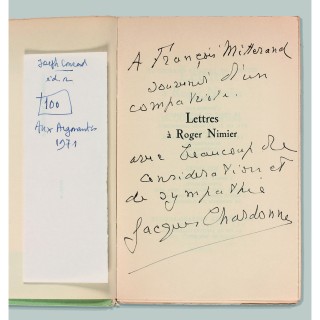 Joseph Conrad
100
Aux Argonautes
1971
A François Mitterand
souvenir d'un
compatriote.
Lettres
à Roger Nimier
avec beaucoup de
considération et
de sympathie
Jacques Chardonne